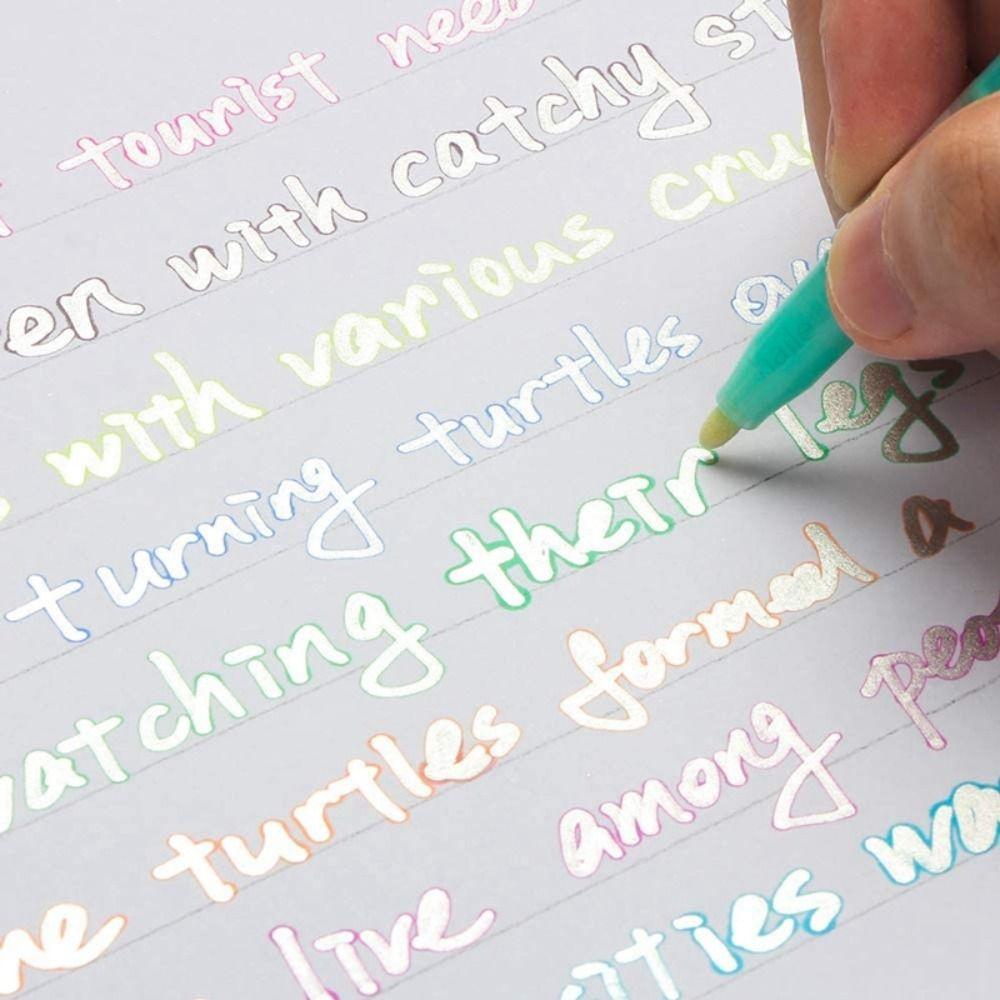 tourist need
en with catchy st
with various cru
turning turtles
atching their legs
ne turtles formed a
live among peo
ities wa